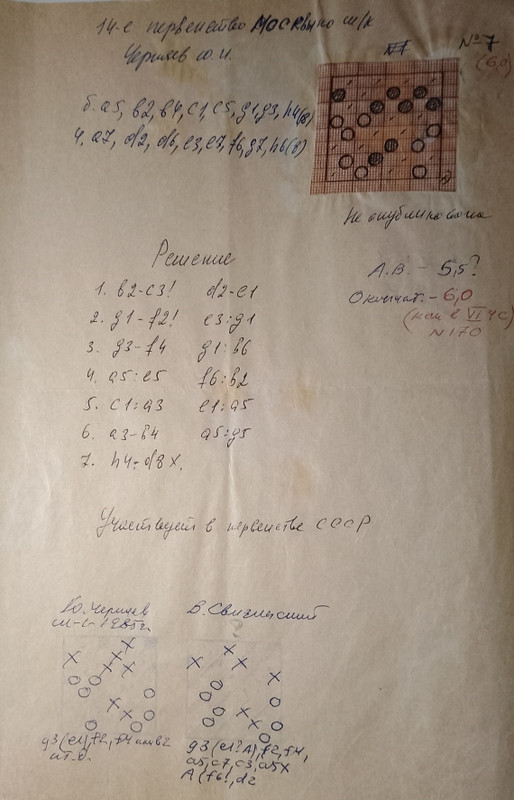 14-е первенство Москвы по ш/к
Черняев Ю.И.
№ 7
(6,0)
б. a5, b2, b4, c1, c5, g1, g3, h4 (8)
ч. a7, d2, d6, e3, e7, f6, g7, h6 (8)
Не опубликована
А.В. – 5,5?
Окончат. – 6,0
(как в VI ЧС)
N 170
Решение
1. b2-c3! d2-e1
2. g1-f2! e3:g1
3. g3-f4 g1:b6
4. a5:e5 f6:b2
5. c1:a3 e1:a5
6. a3-b4 a5:g5
7. h4:d8 X.
Участвует в первенстве СССР
Ю. Черняев
В.
?
g3(e1), f2, f4
g3(e1? A), f2, f4,
a5, c7, c3, a5X
A(f6!, d2